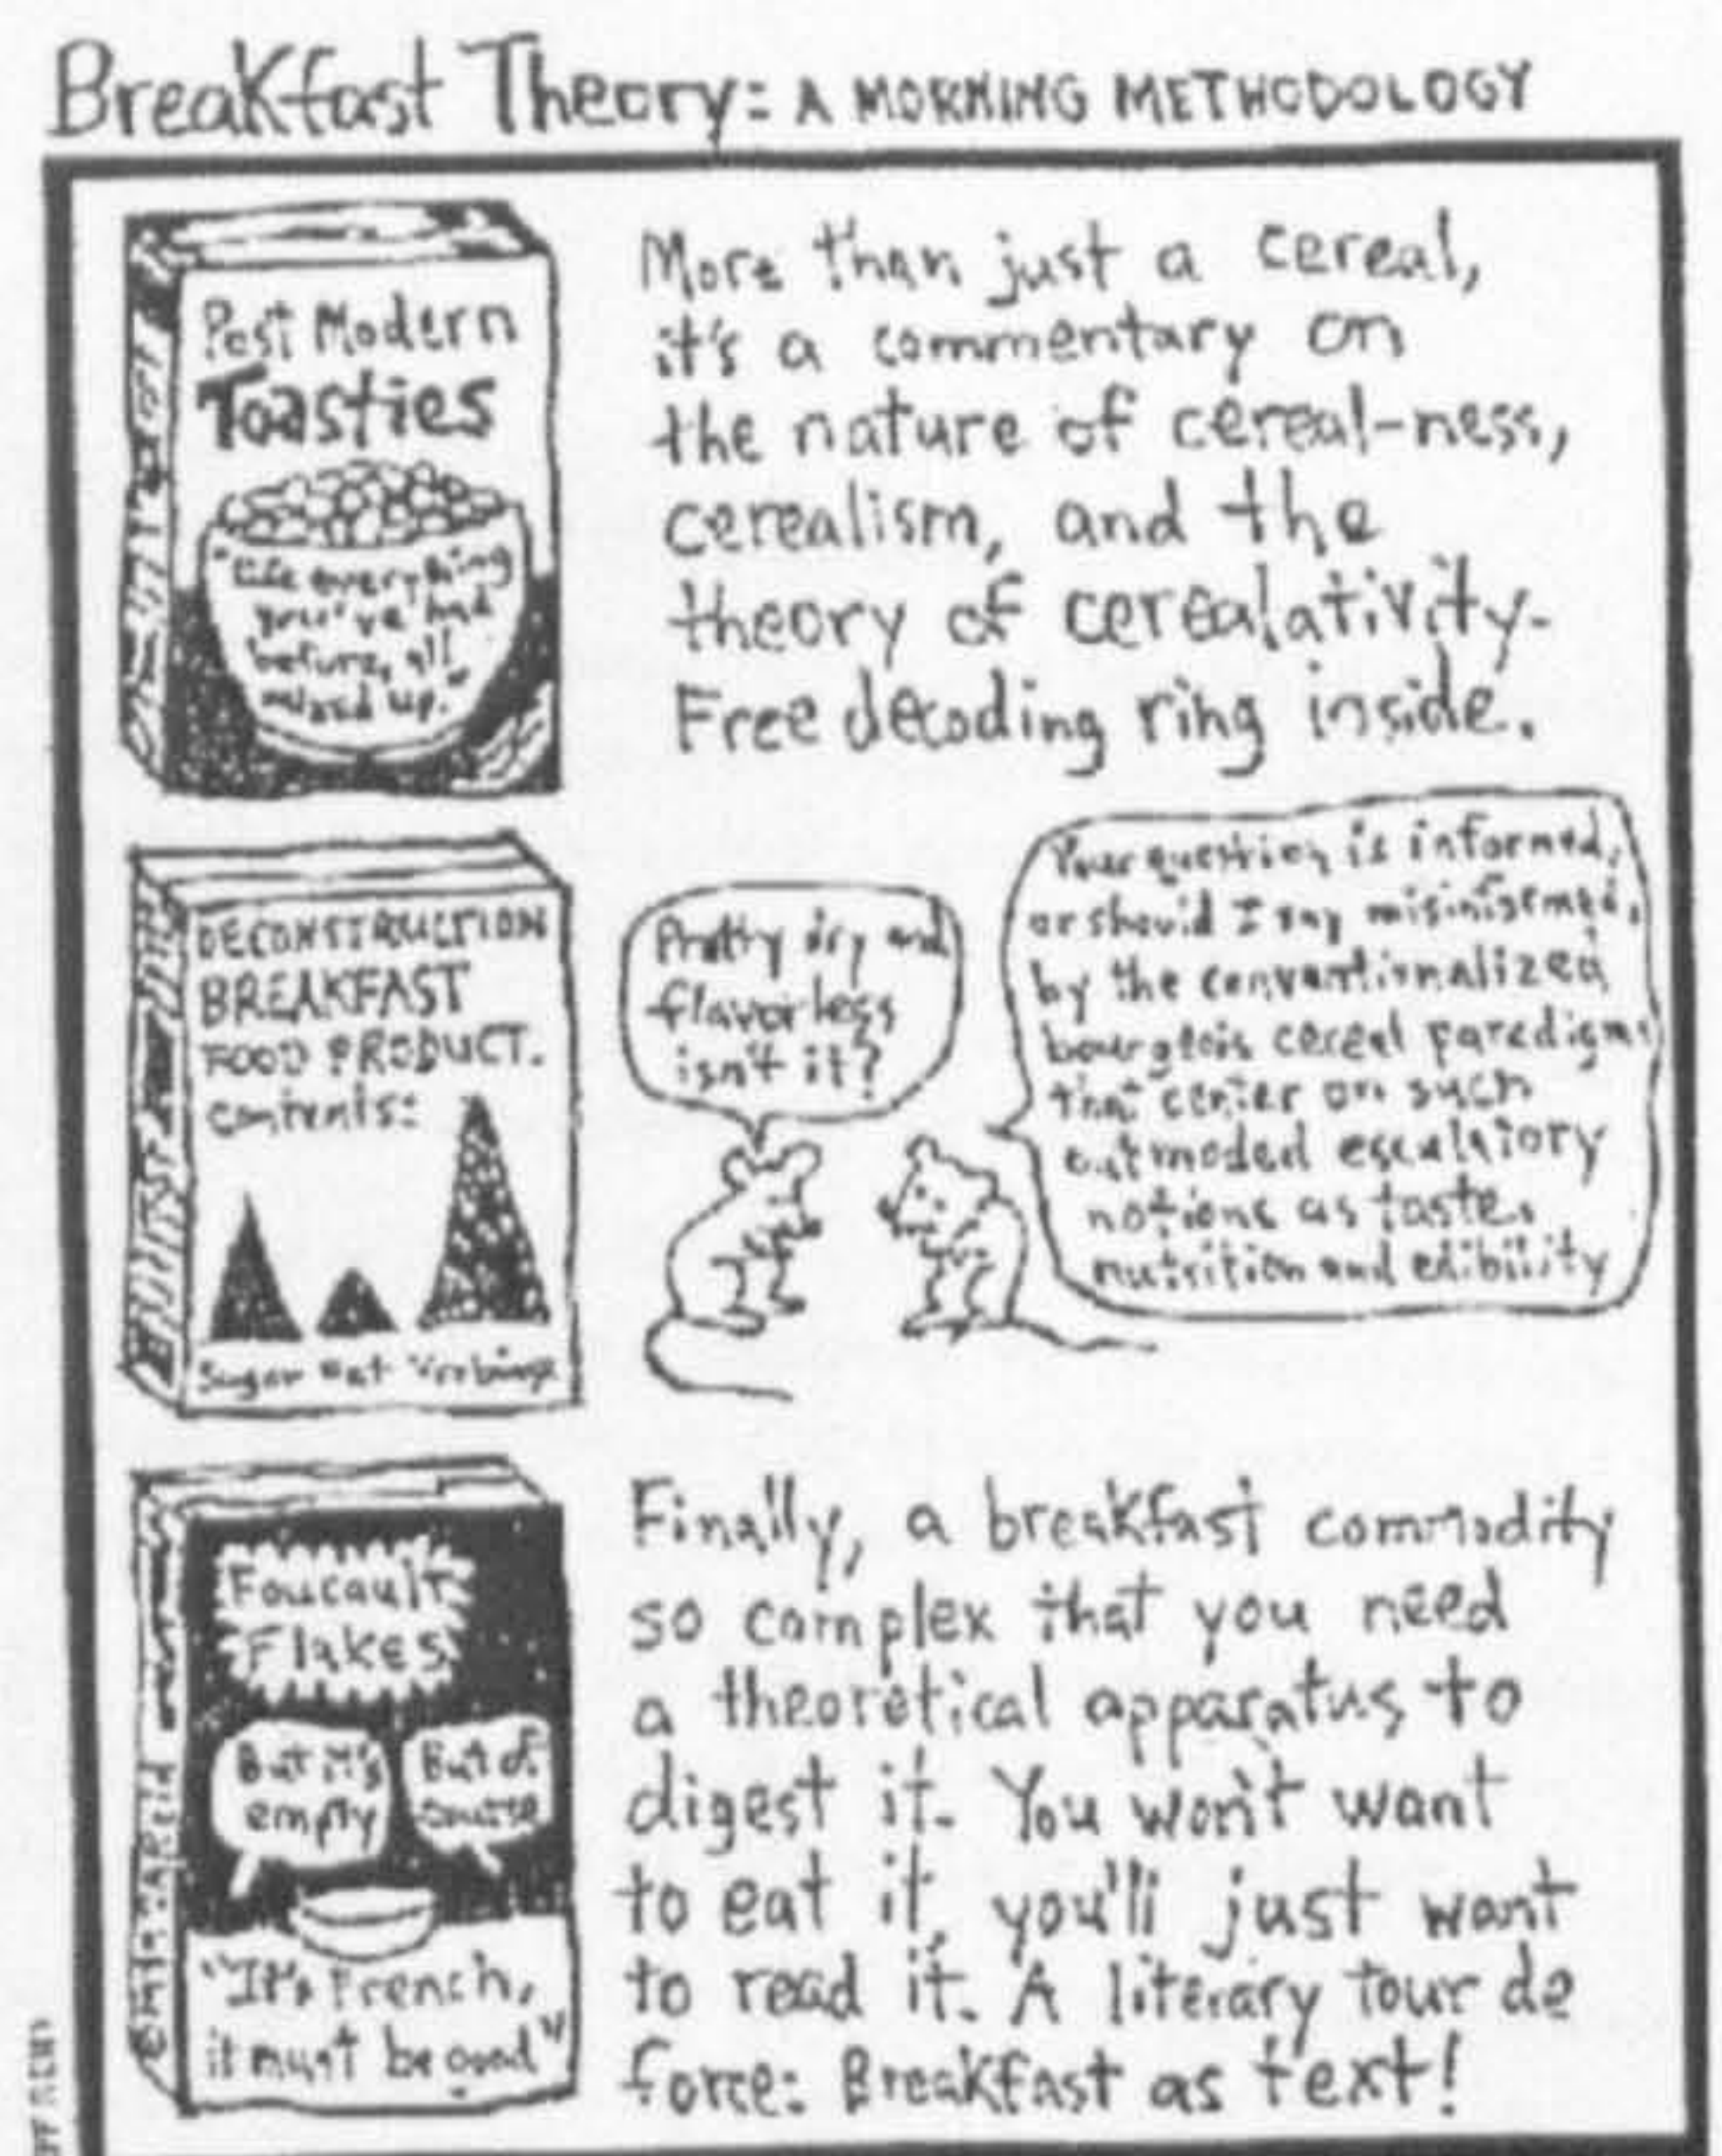 Breakfast Theory: A MORNING METHODOLOGY
Post Modern
Toasties
"Like everything
you've had
before, all
mixed up."
More than just a cereal,
it's a commentary on
the nature of cereal-ness,
cerealism, and the
theory of cerealativity.
Free decoding ring inside.
DECONSTRUCTION
BREAKFAST
FOOD PRODUCT.
contents:
Sugar Verbiage
Pretty dry and
flavorless
isn't it?
Your question is informed,
or should I say misinformed,
by the conventionalized
bourgeois cereal paradigms
that center on such
outmoded
notions as taste,
nutrition and edibility
Foucault
Flakes
But it's
empty
But of
course
"It's French,
it must be good"
Finally, a breakfast commodity
so complex that you need
a theoretical apparatus to
digest it. You won't want
to eat it, you'll just want
to read it. A literary tour de
force: Breakfast as text!